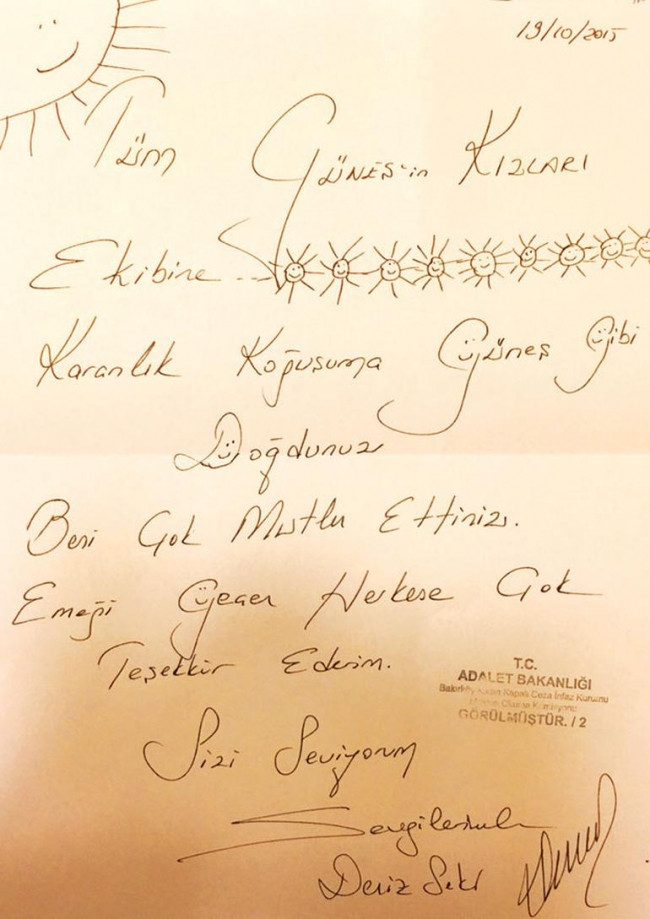 19/10/2015
Tüm GÜNEŞ'in KIZLARI
Ekibine ...
Karanlık Koğuşuma Güneş Gibi
Doğdunuz
Beni Çok Mutlu Ettiniz.
Emeği Geçen Herkese Çok
Teşekkür Ederim.
T.C.
ADALET BAKANLIĞI
Bakırköy Kadın Kapalı Ceza İnfaz Kurumu
GÖRÜLMÜŞTÜR. / 2
Sizi Seviyorum
Sevgilerimle
Deniz Seki